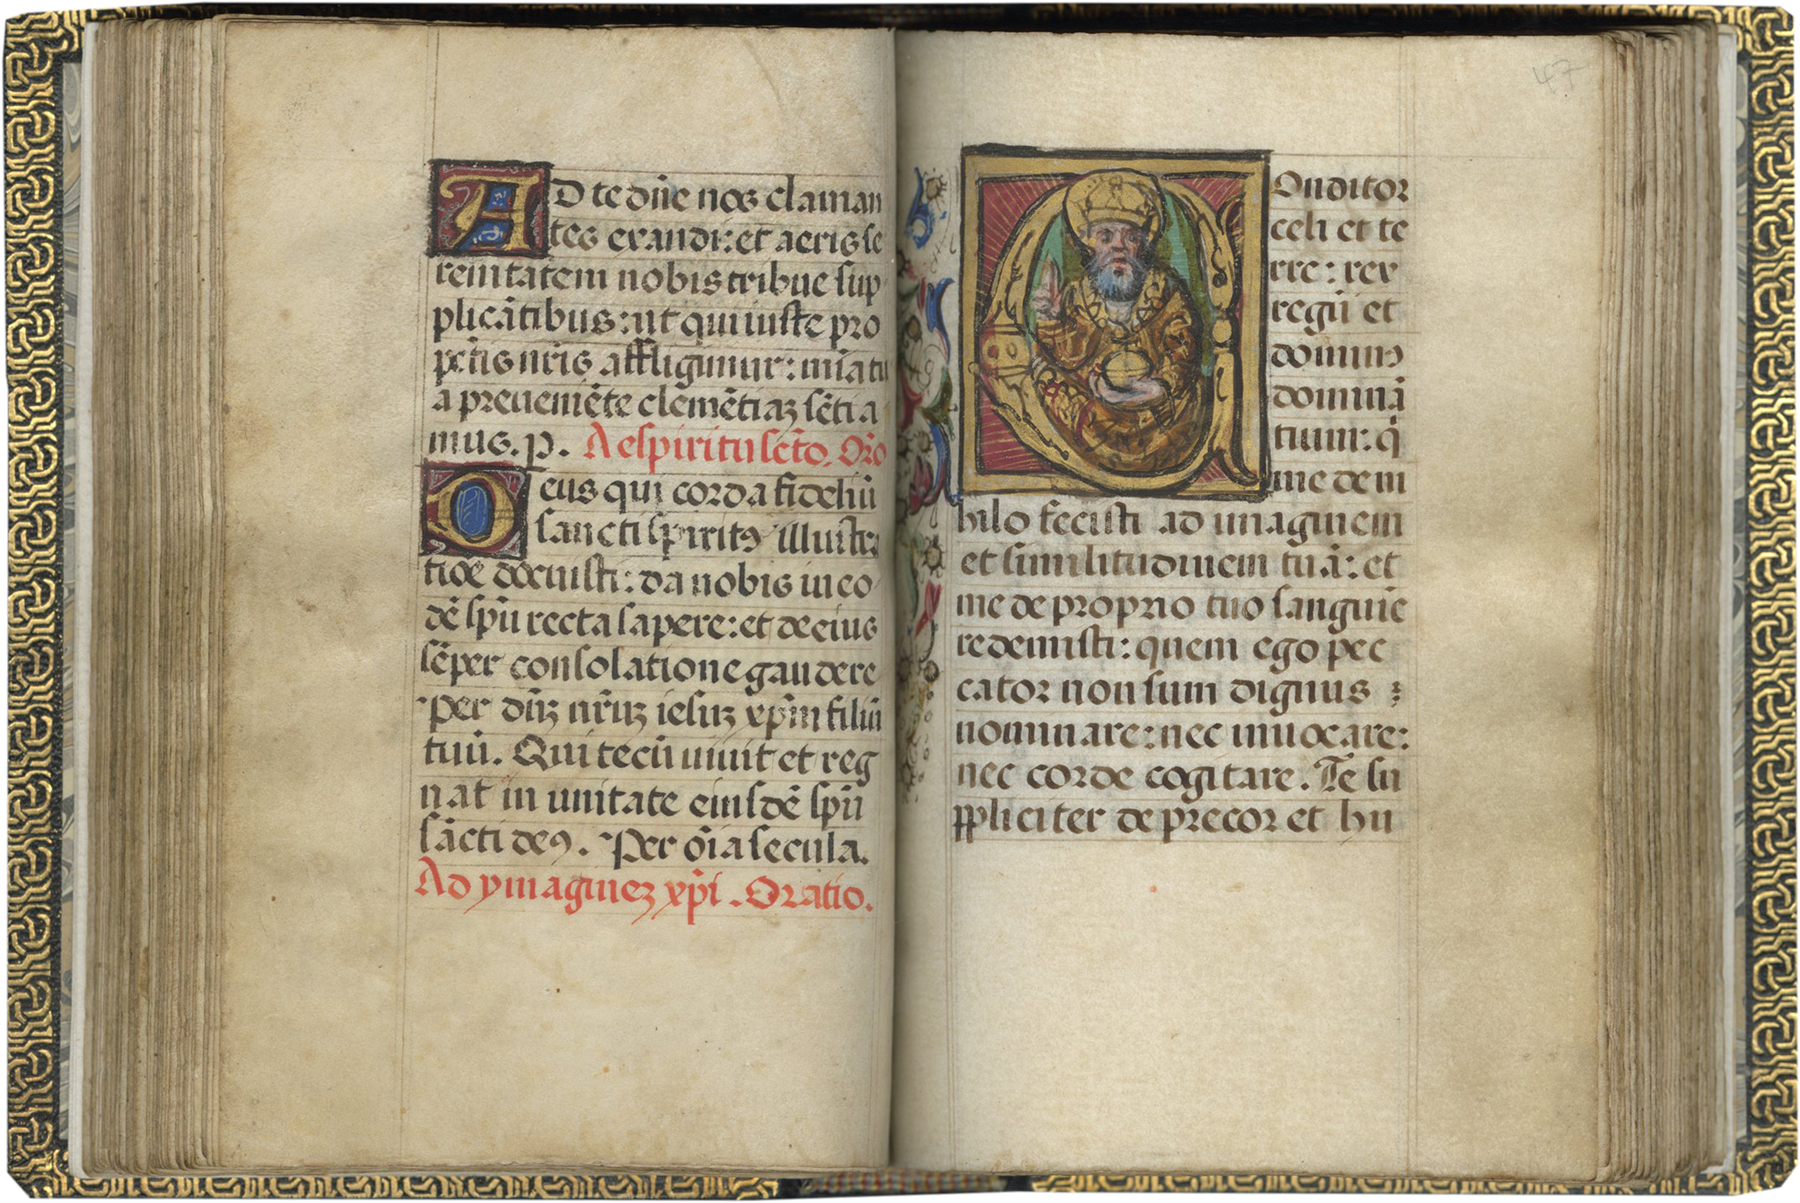 AD te dñe nos claman
tes exaudi: et aeris se
renitatem nobis tribue sup
plicãtibus: ut qui iuste pro
pctĩs nrĩs affligimur: mĩa tu
a preueniẽte clemẽtiaʒ sẽtia
mus. P. A espiritu scto. Orõ
Deus qui corda fideliũ
sancti spiritꝰ illustra
tiõe docuisti: da nobis in eo
dẽ spũ recta sapere: et de eius
sẽper consolatione gaudere
Per dñʒ nrũʒ iesuʒ xpm̃ filiũ
tuũ. Qui tecũ uiuit et reg
nat in unitate eiusdẽ spũ
sãcti deꝰ. Per oĩa secula.
Ad ymagineʒ xpi. Oratio.
47
Conditor
celi et te
rre: rex
regũ et
dominꝰ
dominã
tium: q̃
me de ni
hilo fecisti ad imaginem
et similitudinem tuã: et
me de proprio tuo sanguĩe
redemisti: quem ego pec
cator non sum dignus
nominare: nec inuocare:
nec corde cogitare. Te su
ppliciter deprecor et hu